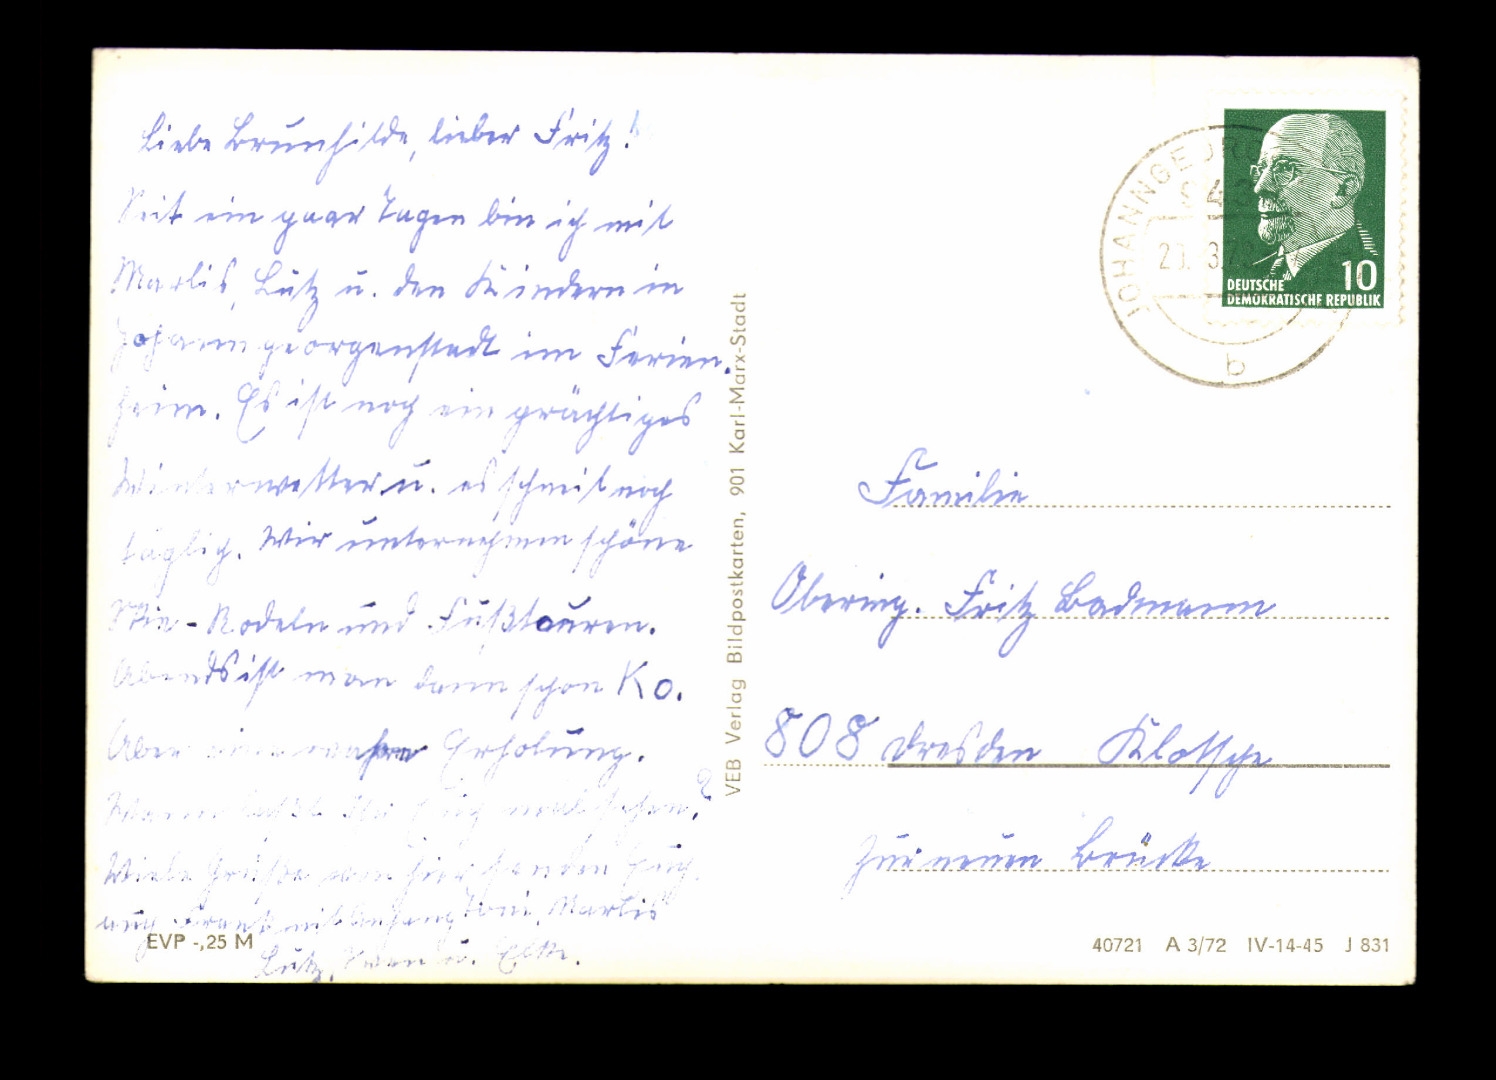 Liebe Brunhilde, lieber Fritz!
Seit ein paar Tagen bin ich mit
Marlis, Lutz u. den Kindern in
Johanngeorgenstadt im Ferien-
heim. Es ist noch ein prächtiges
Winterwetter u. es schneit noch
täglich. Wir unternehmen schöne
Ski- Rodeln und Fußtouren.
Abends ist man dann schon Ko.
Aber eine wahre Erholung.
Wann laßt Ihr Euch mal sehen?
Viele Grüße von hier senden Euch
auch Frank mit Anhang Toni, Marlis
Lutz, u.
EVP -,25 M
VEB Verlag Bildpostkarten, 901 Karl-Marx-Stadt
JOHANNGEOR
b
10
DEUTSCHE
DEMOKRATISCHE REPUBLIK
Familie
Obering. Fritz Badmann
808 Dresden Klotsche
Zur neuen Brücke
40721 A 3/72 IV-14-45 J 831